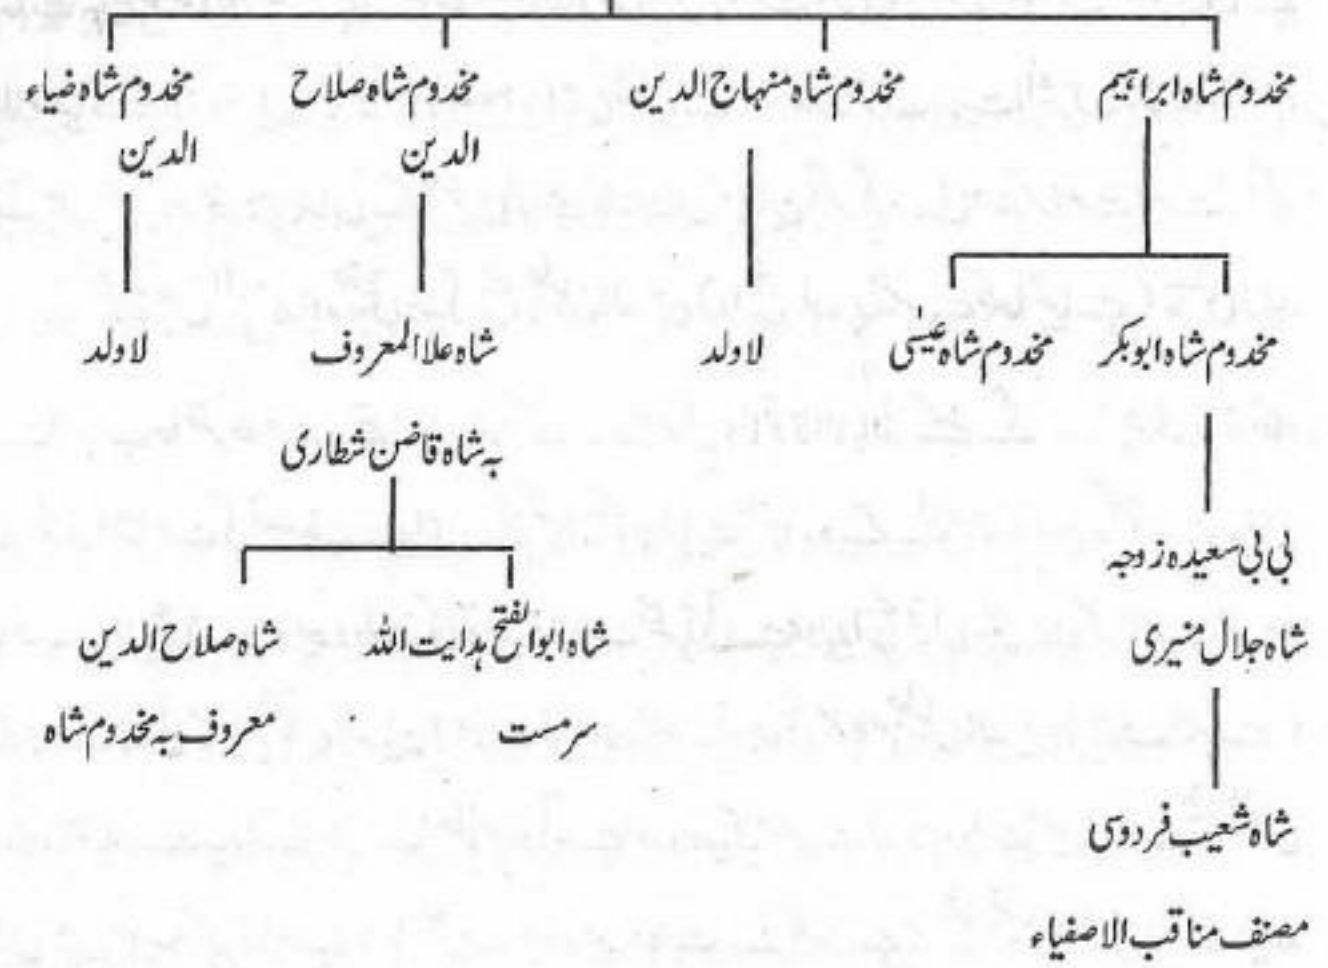 مخدوم شاہ ابراہیم
مخدوم شاہ منہاج الدین
مخدوم شاہ صلاح
الدین
مخدوم شاہ ضیاء
الدین
مخدوم شاہ ابوبکر
مخدوم شاہ عیسٰی
لاولد
شاہ علا المعروف
بہ شاہ قاضن شطاری
لاولد
بی بی سعیدہ زوجہ
شاہ جلال منیری
شاہ ابوالفتح ہدایت اللہ
سرمست
شاہ صلاح الدین
معروف بہ مخدوم شاہ
شاہ شعیب فردوسی
مصنف مناقب الاصفیاء